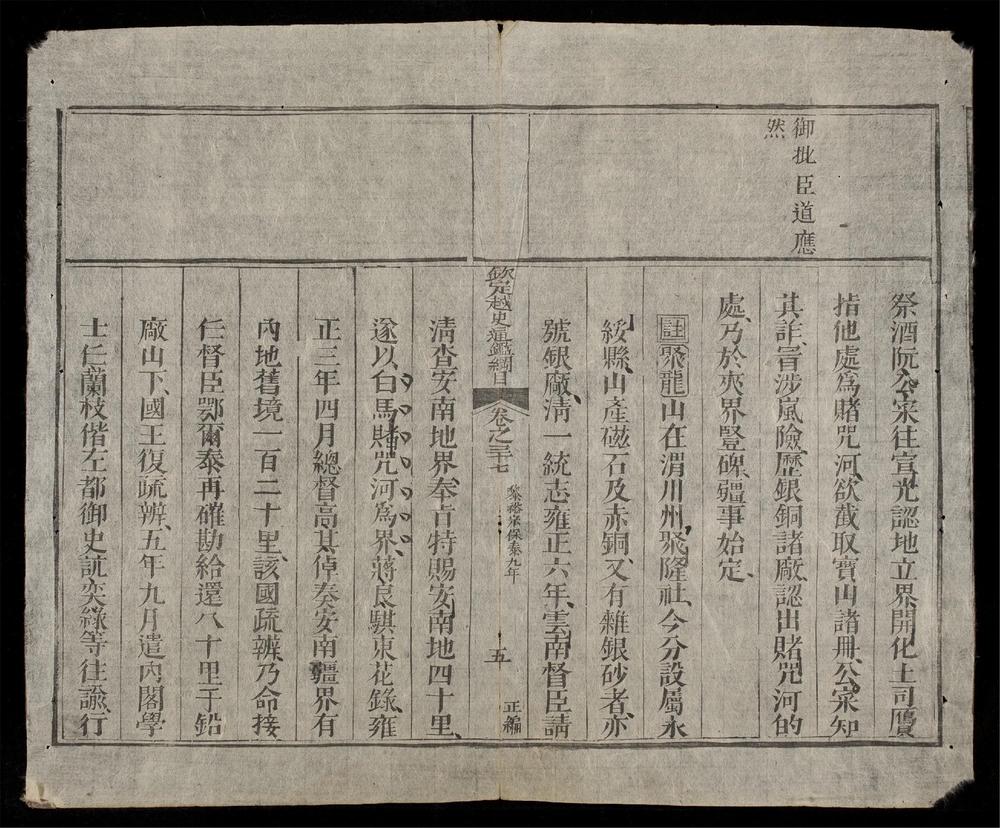 御批臣道應
然
祭酒阮公寀往宣光認地立界開化土司贋
指他處爲賭咒河欲截取寶山諸冊公寀知
其詐冒涉嵐險歷銀銅諸廠認出賭咒河的
處乃於夾界豎碑疆事始定
註聚龍山在渭川州聚隆社今分設屬永
綏縣山產磁石及赤銅又有雜銀砂者亦
號銀廠清一統志雍正六年雲南督臣請
欽定越史通鑑綱目
卷之三十七
黎裕宗保泰九年
五
正編
清查安南地界奉旨特賜安南地四十里
遂以白馬賭咒河爲界蔣良騏東花錄雍
正三年四月總督高其倬奏安南疆界有
內地舊境一百二十里該國疏辨乃命接
任督臣鄂爾泰再確勘給還八十里于鉛
廠山下國王復疏辨五年九月遣內閣學
士任蘭枝偕左都御史訧奕綠等往諭行